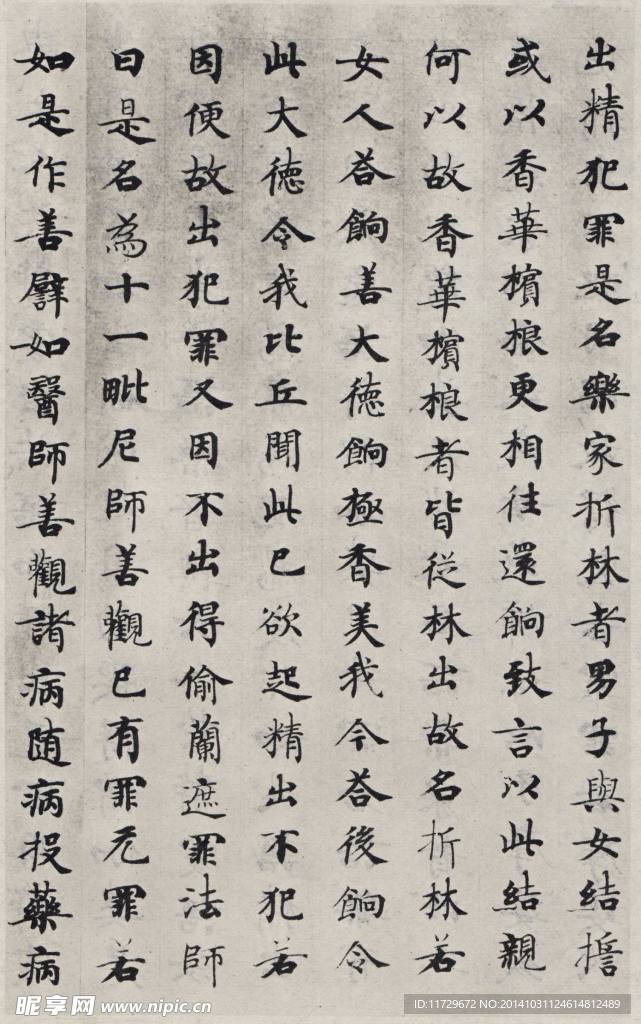 出精犯罪是名樂家折林者男子與女結擔
或以香華檳榔更相往還餉致言以此結親
何以故香華檳榔者皆從林出故名折林若
女人荅餉善大德餉極香美我今荅後餉令
此大德令我比丘聞此已欲起精出不犯若
因便故出犯罪又因不出得偷蘭遮罪法師
曰是名為十一毗尼師善觀已有罪无罪若
如是作善譬如醫師善觀諸病随病投藥病
昵享网 www.nipic.cn
ID:11729672 NO:20141031124614812489